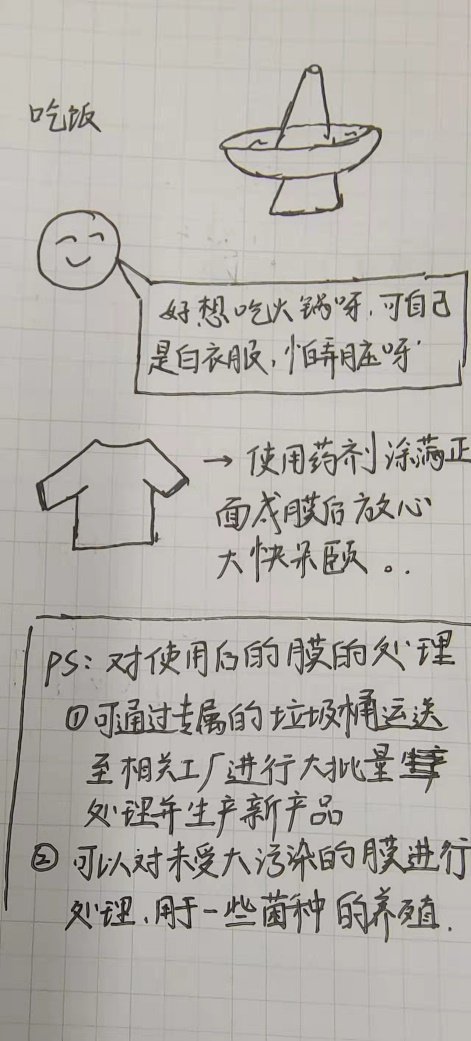 吃饭
好想吃火锅呀，可自己
是白衣服，怕弄脏呀
→ 使用药剂涂满正
面成膜后放心
大快朵颐。..
PS: 对使用后的膜的处理
①可通过专属的垃圾桶运送
至相关工厂进行大批量
处理并生产新产品
② 可以对未受大污染的膜进行
处理、用于一些菌种的养殖.